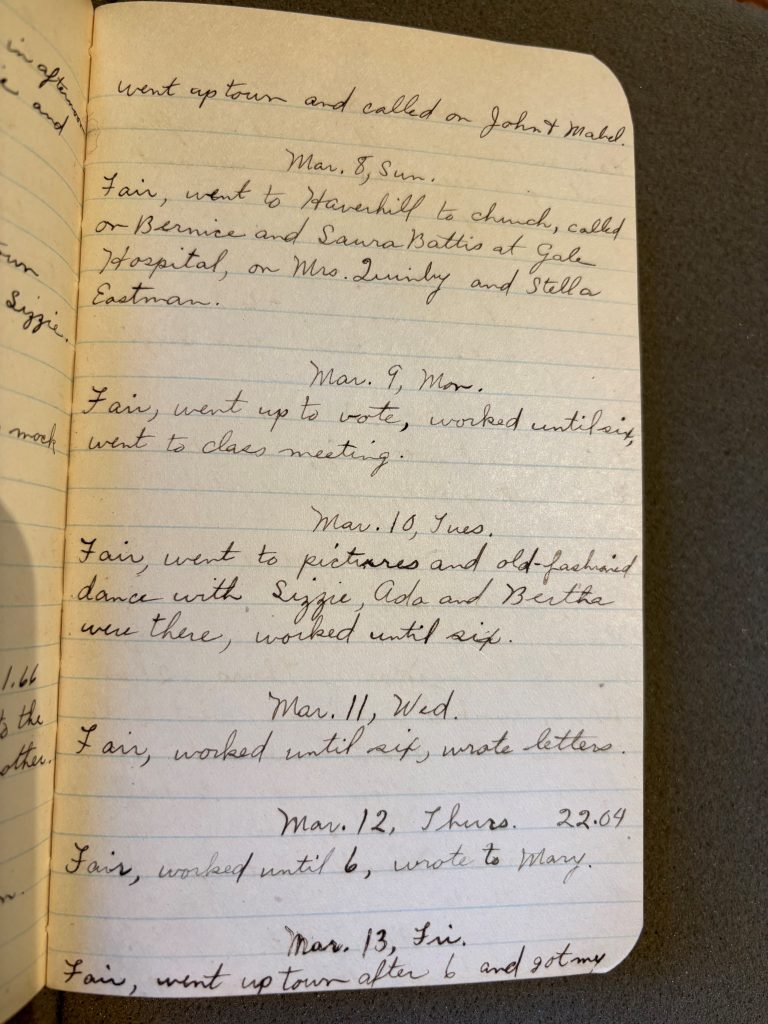 in afternoon
and
own
Lizzie.
mock
1.66
to the
other.
went up town and called on John & Mabel.
Mar. 8, Sun.
Fair, went to Haverhill to church, called
on Bernice and Laura Battis at Gale
Hospital, on Mrs. Quimby and Stella
Eastman.
Mar. 9, Mon.
Fair, went up to vote, worked until six,
went to class meeting.
Mar. 10, Tues.
Fair, went to pictures and old-fashioned
dance with Lizzie, Ada and Bertha
were there, worked until six.
Mar. 11, Wed.
Fair, worked until six, wrote letters.
Mar. 12, Thurs. 22.04
Fair, worked until 6, wrote to Mary.
Mar. 13, Fri.
Fair, went up town after 6 and got my